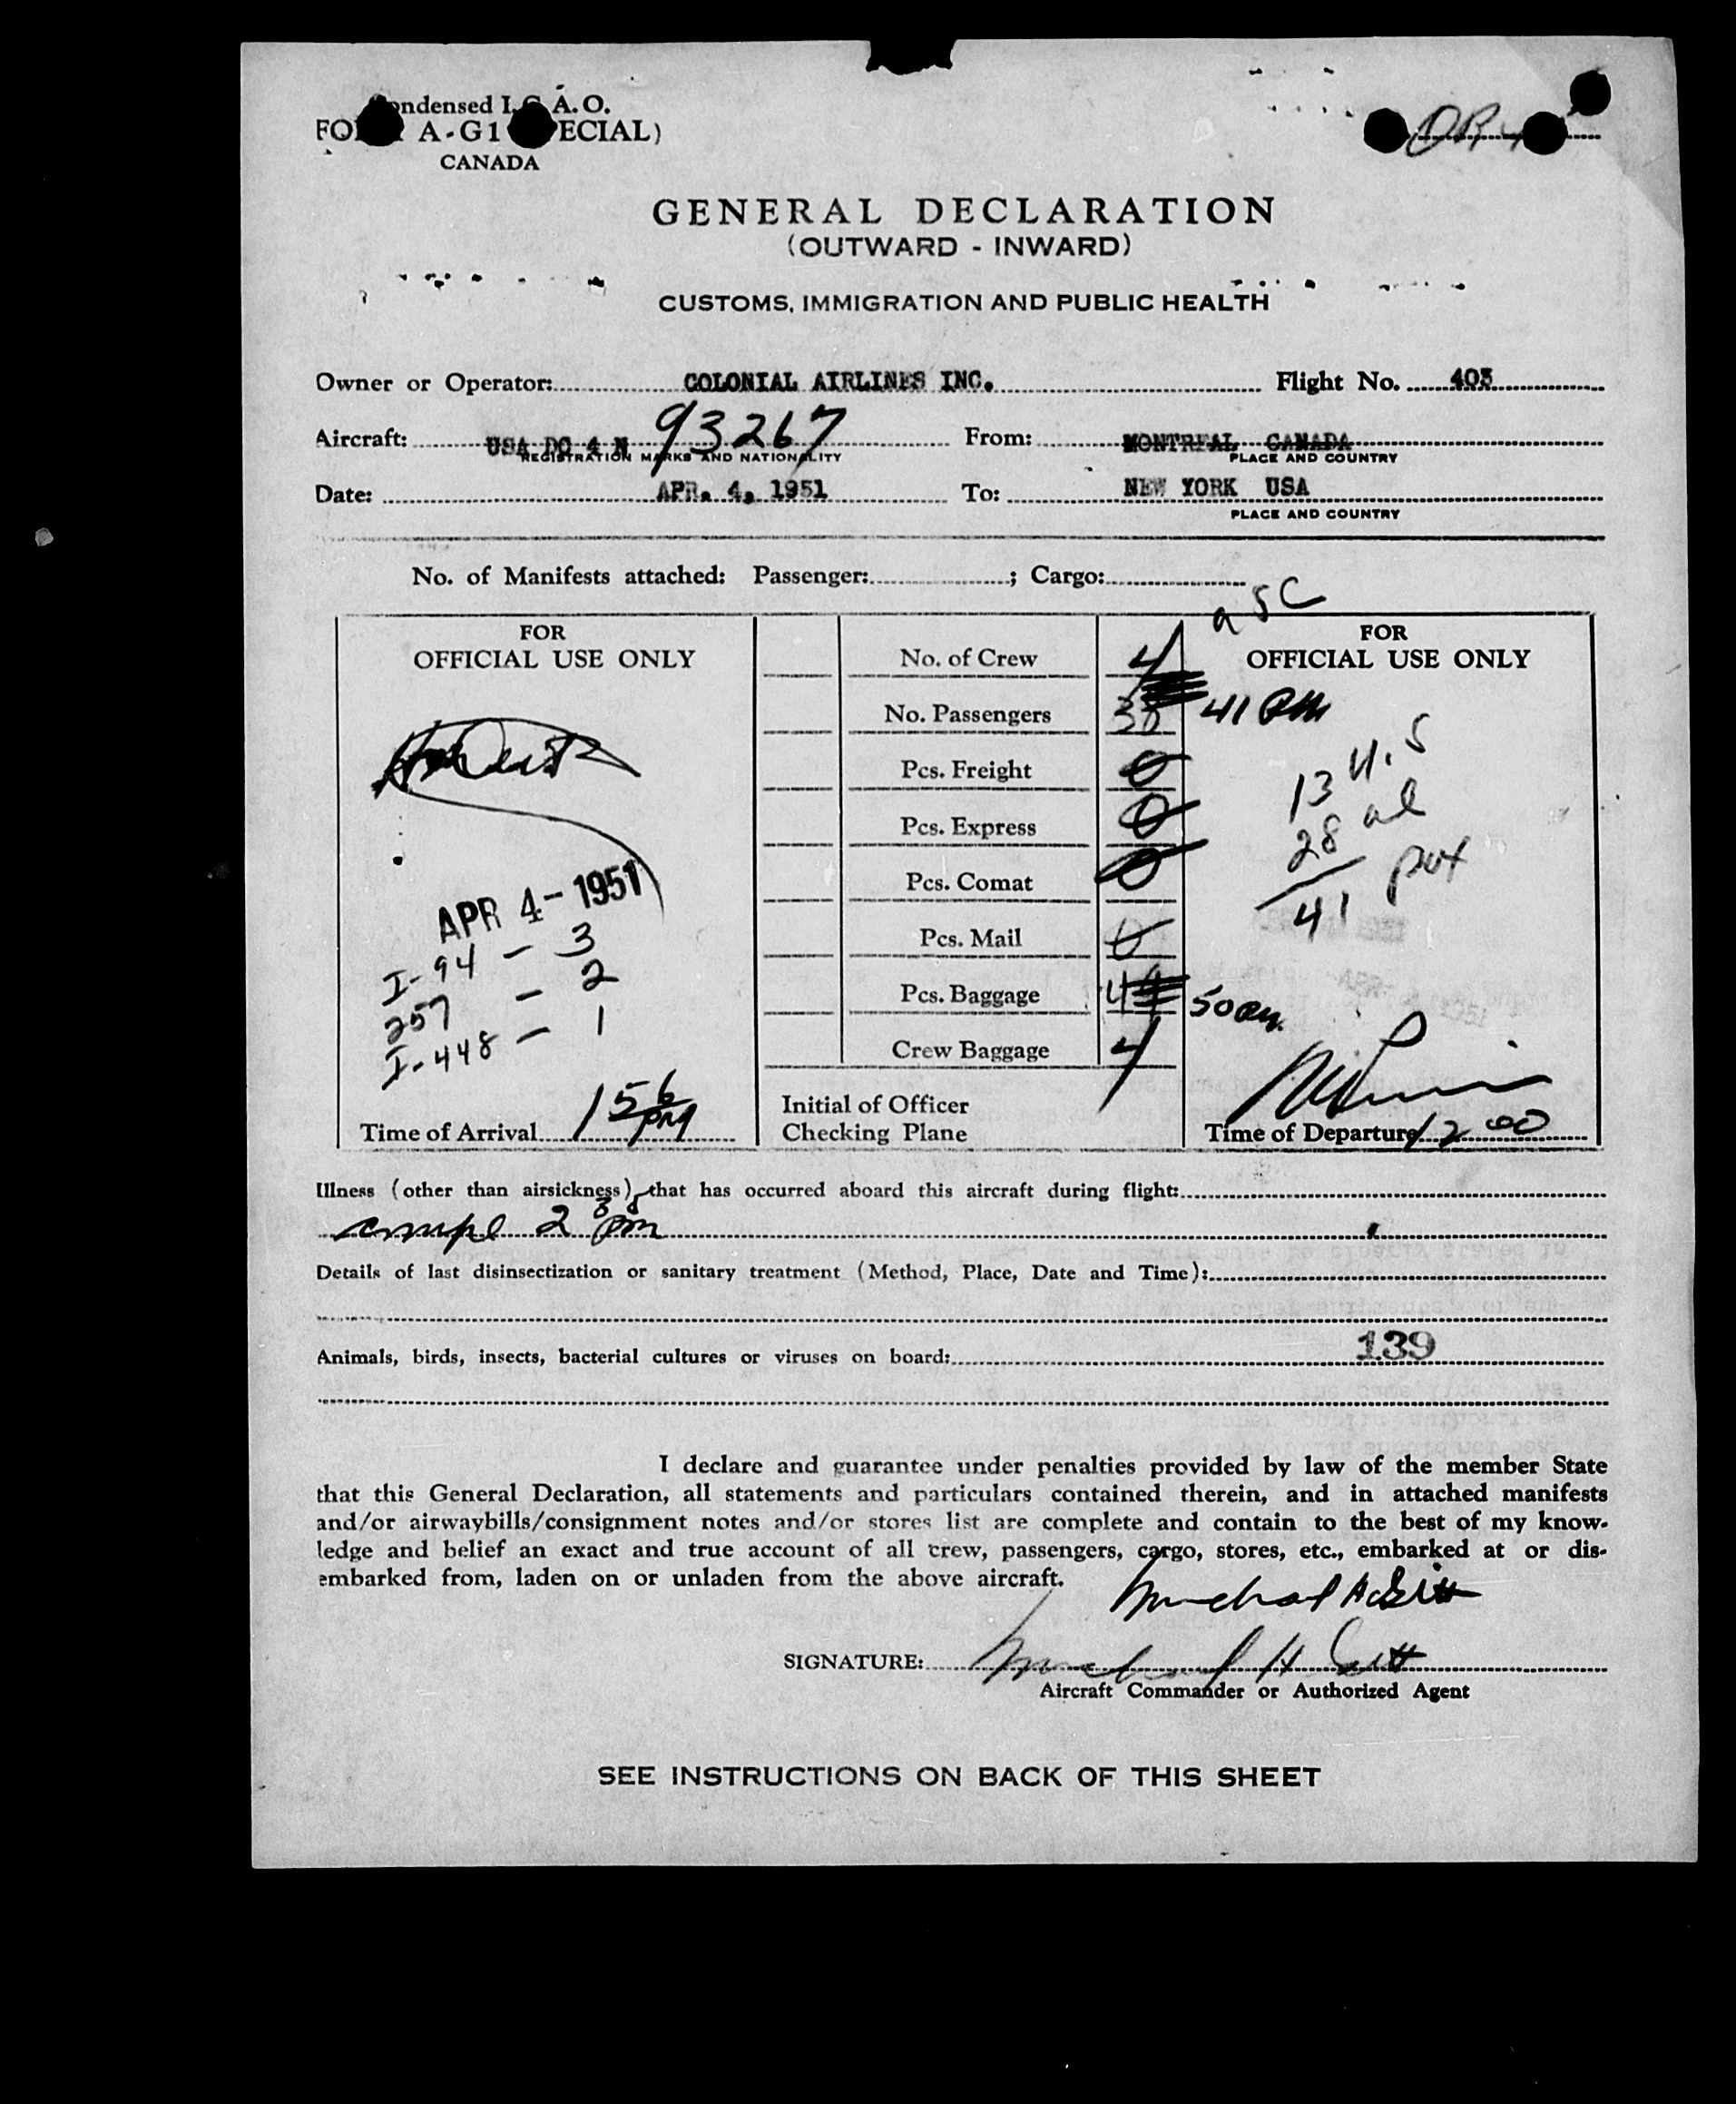 Condensed I.C.A.O.
FORM A-G1 (SPECIAL)
CANADA
GENERAL DECLARATION
(OUTWARD - INWARD)
CUSTOMS, IMMIGRATION AND PUBLIC HEALTH
Owner or Operator: COLONIAL AIRLINES INC. Flight No. 403
Aircraft: USA DC 4 N 93267 From: MONTREAL CANADA
REGISTRATION MARKS AND NATIONALITY PLACE AND COUNTRY
Date: APR. 4, 1951 To: NEW YORK USA
PLACE AND COUNTRY
No. of Manifests attached: Passenger: ; Cargo:
FOR
OFFICIAL USE ONLY
APR 4- 1951
I-94 - 3
257 - 2
I-448 - 1
Time of Arrival 156 PM
No. of Crew 4
No. Passengers 38
Pcs. Freight 0
Pcs. Express 0
Pcs. Comat 0
Pcs. Mail 0
Pcs. Baggage 44
Crew Baggage 4
Initial of Officer
Checking Plane
FOR
OFFICIAL USE ONLY
41
13 U.S
28 al
41
50
Time of Departure 12 00
Illness (other than airsickness) that has occurred aboard this aircraft during flight:
2 pm
Details of last disinsectization or sanitary treatment (Method, Place, Date and Time):
139
Animals, birds, insects, bacterial cultures or viruses on board:
I declare and guarantee under penalties provided by law of the member State
that this General Declaration, all statements and particulars contained therein, and in attached manifests
and/or airwaybills/consignment notes and/or stores list are complete and contain to the best of my know-
ledge and belief an exact and true account of all crew, passengers, cargo, stores, etc., embarked at or dis-
embarked from, laden on or unladen from the above aircraft.
SIGNATURE: Michael H
Aircraft Commander or Authorized Agent
SEE INSTRUCTIONS ON BACK OF THIS SHEET